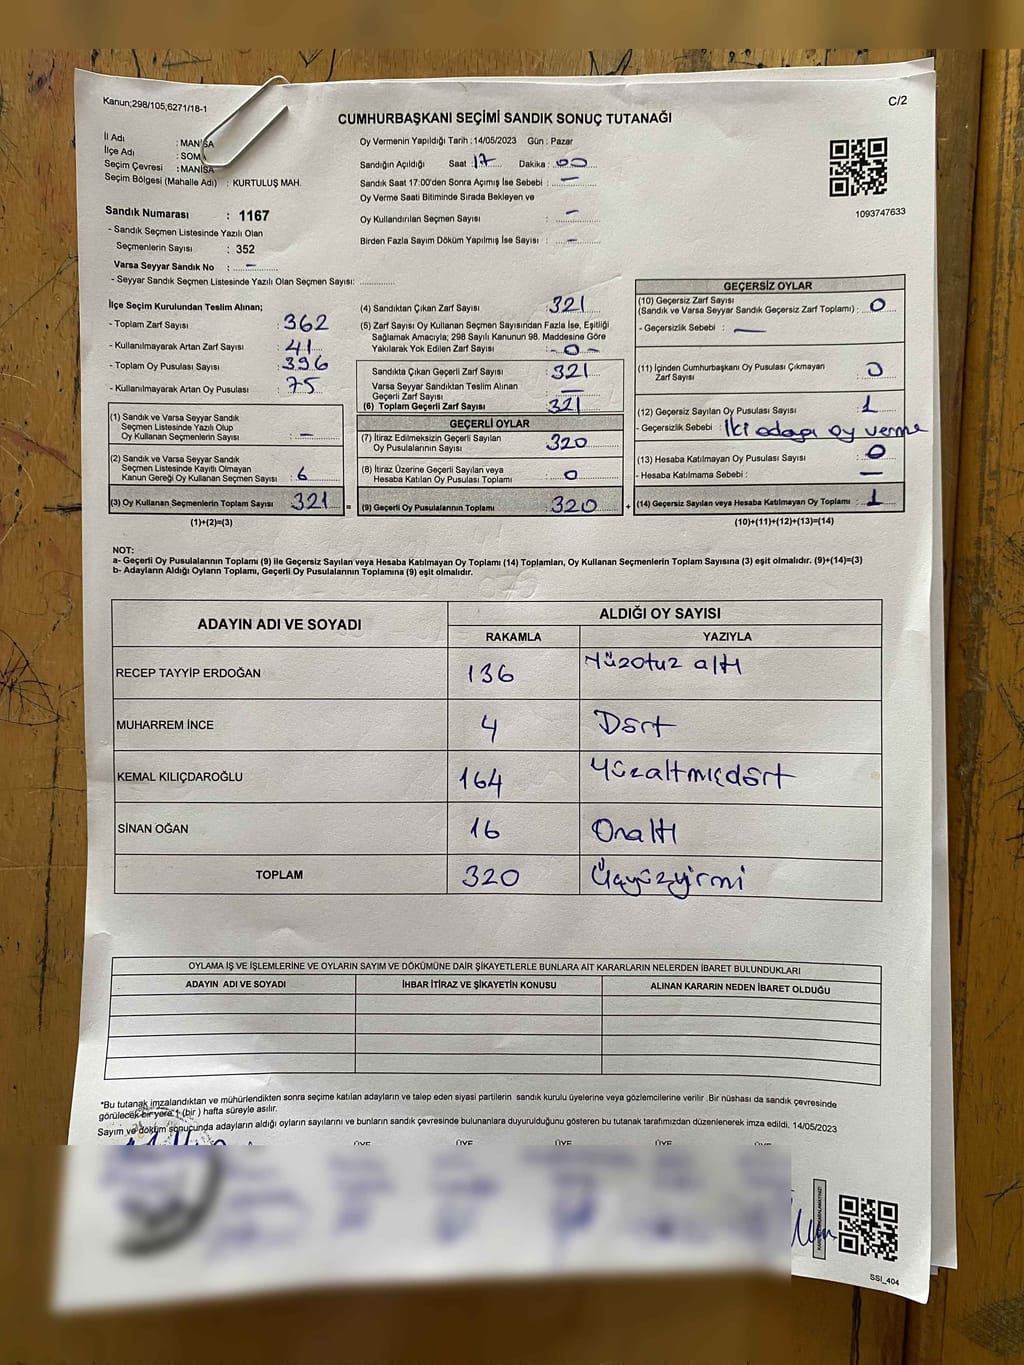 Kanun;298/105,6271/18-1
C/2
CUMHURBAŞKANI SEÇİMİ SANDIK SONUÇ TUTANAĞI
İl Adı : MANİSA
İlçe Adı : SOMA
Seçim Çevresi : MANİSA
Seçim Bölgesi (Mahalle Adı) : KURTULUŞ MAH.
Sandık Numarası : 1167
- Sandık Seçmen Listesinde Yazılı Olan
Seçmenlerin Sayısı : 352
Varsa Seyyar Sandık No : –
- Seyyar Sandık Seçmen Listesinde Yazılı Olan Seçmen Sayısı: ..............
Oy Vermenin Yapıldığı Tarih :14/05/2023 Gün : Pazar
Sandığın Açıldığı Saat 17 Dakika : 00
Sandık Saat 17:00'den Sonra Açımış İse Sebebi : –
Oy Verme Saati Bitiminde Sırada Bekleyen ve
Oy Kullandırılan Seçmen Sayısı : –
Birden Fazla Sayım Döküm Yapılmış İse Sayısı : –
1093747633
İlçe Seçim Kurulundan Teslim Alınan;
- Toplam Zarf Sayısı : 362
- Kullanılmayarak Artan Zarf Sayısı : 41
- Toplam Oy Pusulası Sayısı : 396
- Kullanılmayarak Artan Oy Pusulası : 75
(1) Sandık ve Varsa Seyyar Sandık
Seçmen Listesinde Yazılı Olup
Oy Kullanan Seçmenlerin Sayısı : –
(2) Sandık ve Varsa Seyyar Sandık
Seçmen Listesinde Kayıtlı Olmayan
Kanun Gereği Oy Kullanan Seçmen Sayısı : 6
(3) Oy Kullanan Seçmenlerin Toplam Sayısı 321 =
(1)+(2)=(3)
(4) Sandıktan Çıkan Zarf Sayısı : 321
(5) Zarf Sayısı Oy Kullanan Seçmen Sayısından Fazla İse, Eşitliği
Sağlamak Amacıyla; 298 Sayılı Kanunun 98. Maddesine Göre
Yakılarak Yok Edilen Zarf Sayısı : -0-
Sandıkta Çıkan Geçerli Zarf Sayısı : 321
Varsa Seyyar Sandıktan Teslim Alınan
Geçerli Zarf Sayısı : –
(6) Toplam Geçerli Zarf Sayısı : 321
GEÇERLİ OYLAR
(7) İtiraz Edilmeksizin Geçerli Sayılan
Oy Pusulalarının Sayısı : 320
(8) İtiraz Üzerine Geçerli Sayılan veya
Hesaba Katılan Oy Pusulası Toplamı : 0
(9) Geçerli Oy Pusulalarının Toplamı : 320 +
GEÇERSİZ OYLAR
(10) Geçersiz Zarf Sayısı
(Sandık ve Varsa Seyyar Sandık Geçersiz Zarf Toplamı) : 0
- Geçersizlik Sebebi : –
(11) İçinden Cumhurbaşkanı Oy Pusulası Çıkmayan
Zarf Sayısı : 0
(12) Geçersiz Sayılan Oy Pusulası Sayısı : 1
- Geçersizlik Sebebi : İki adaya oy verme
(13) Hesaba Katılmayan Oy Pusulası Sayısı : 0
- Hesaba Katılmama Sebebi : –
(14) Geçersiz Sayılan veya Hesaba Katılmayan Oy Toplamı : 1
(10)+(11)+(12)+(13)=(14)
NOT:
a- Geçerli Oy Pusulalarının Toplamı (9) ile Geçersiz Sayılan veya Hesaba Katılmayan Oy Toplamı (14) Toplamları, Oy Kullanan Seçmenlerin Toplam Sayısına (3) eşit olmalıdır. (9)+(14)=(3)
b- Adayların Aldığı Oyların Toplamı, Geçerli Oy Pusulalarının Toplamına (9) eşit olmalıdır.
ADAYIN ADI VE SOYADI
ALDIĞI OY SAYISI
RAKAMLA YAZIYLA
RECEP TAYYİP ERDOĞAN 136 Yüzotuz altı
MUHARREM İNCE 4 Dört
KEMAL KILIÇDAROĞLU 164 Yüzaltmışdört
SİNAN OĞAN 16 Onaltı
TOPLAM 320 Üçyüzyirmi
OYLAMA İŞ VE İŞLEMLERİNE VE OYLARIN SAYIM VE DÖKÜMÜNE DAİR ŞİKAYETLERLE BUNLARA AİT KARARLARIN NELERDEN İBARET BULUNDUKLARI
ADAYIN ADI VE SOYADI İHBAR İTİRAZ VE ŞİKAYETİN KONUSU ALINAN KARARIN NEDEN İBARET OLDUĞU
*Bu tutanak imzalandıktan ve mühürlendikten sonra seçime katılan adayların ve talep eden siyasi partilerin sandık kurulu üyelerine veya gözlemcilerine verilir .Bir nüshası da sandık çevresinde
görülecek bir yere 1 (bir ) hafta süreyle asılır.
Sayım ve döküm sonucunda adayların aldığı oyların sayılarını ve bunların sandık çevresinde bulunanlara duyurulduğunu gösteren bu tutanak tarafımızdan düzenlenerek imza edildi. 14/05/2023
ÜYE ÜYE ÜYE ÜYE ÜYE
SSI_404